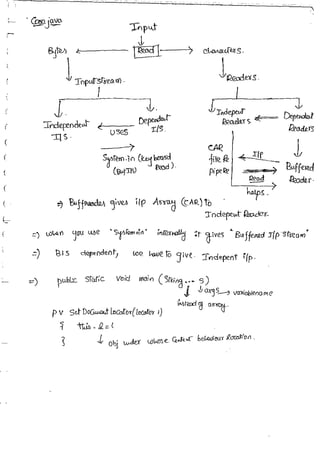 Core java
Input
Bytes Read characters.
InputStream. Readers.
Independent Dependent Independent Dependent
IS. uses I/S. Readers Readers
CAR I/p
System.in (keyboard file R Buffered
(BufIN) Read). pipe R Read Reader.
helps.
=) BufReader gives i/p Array (CAR) to
Independent Reader.
=) when you use "System.in" internally it gives "Buffered I/p Stream"
=) BIS dependent, we have to give. Independent i/p.
=) public static void main (String... s)
args variable name
instead of array.
p v setDocumentLocator(locator l)
{ this.l = l
} obj under whose Content behaviour location.